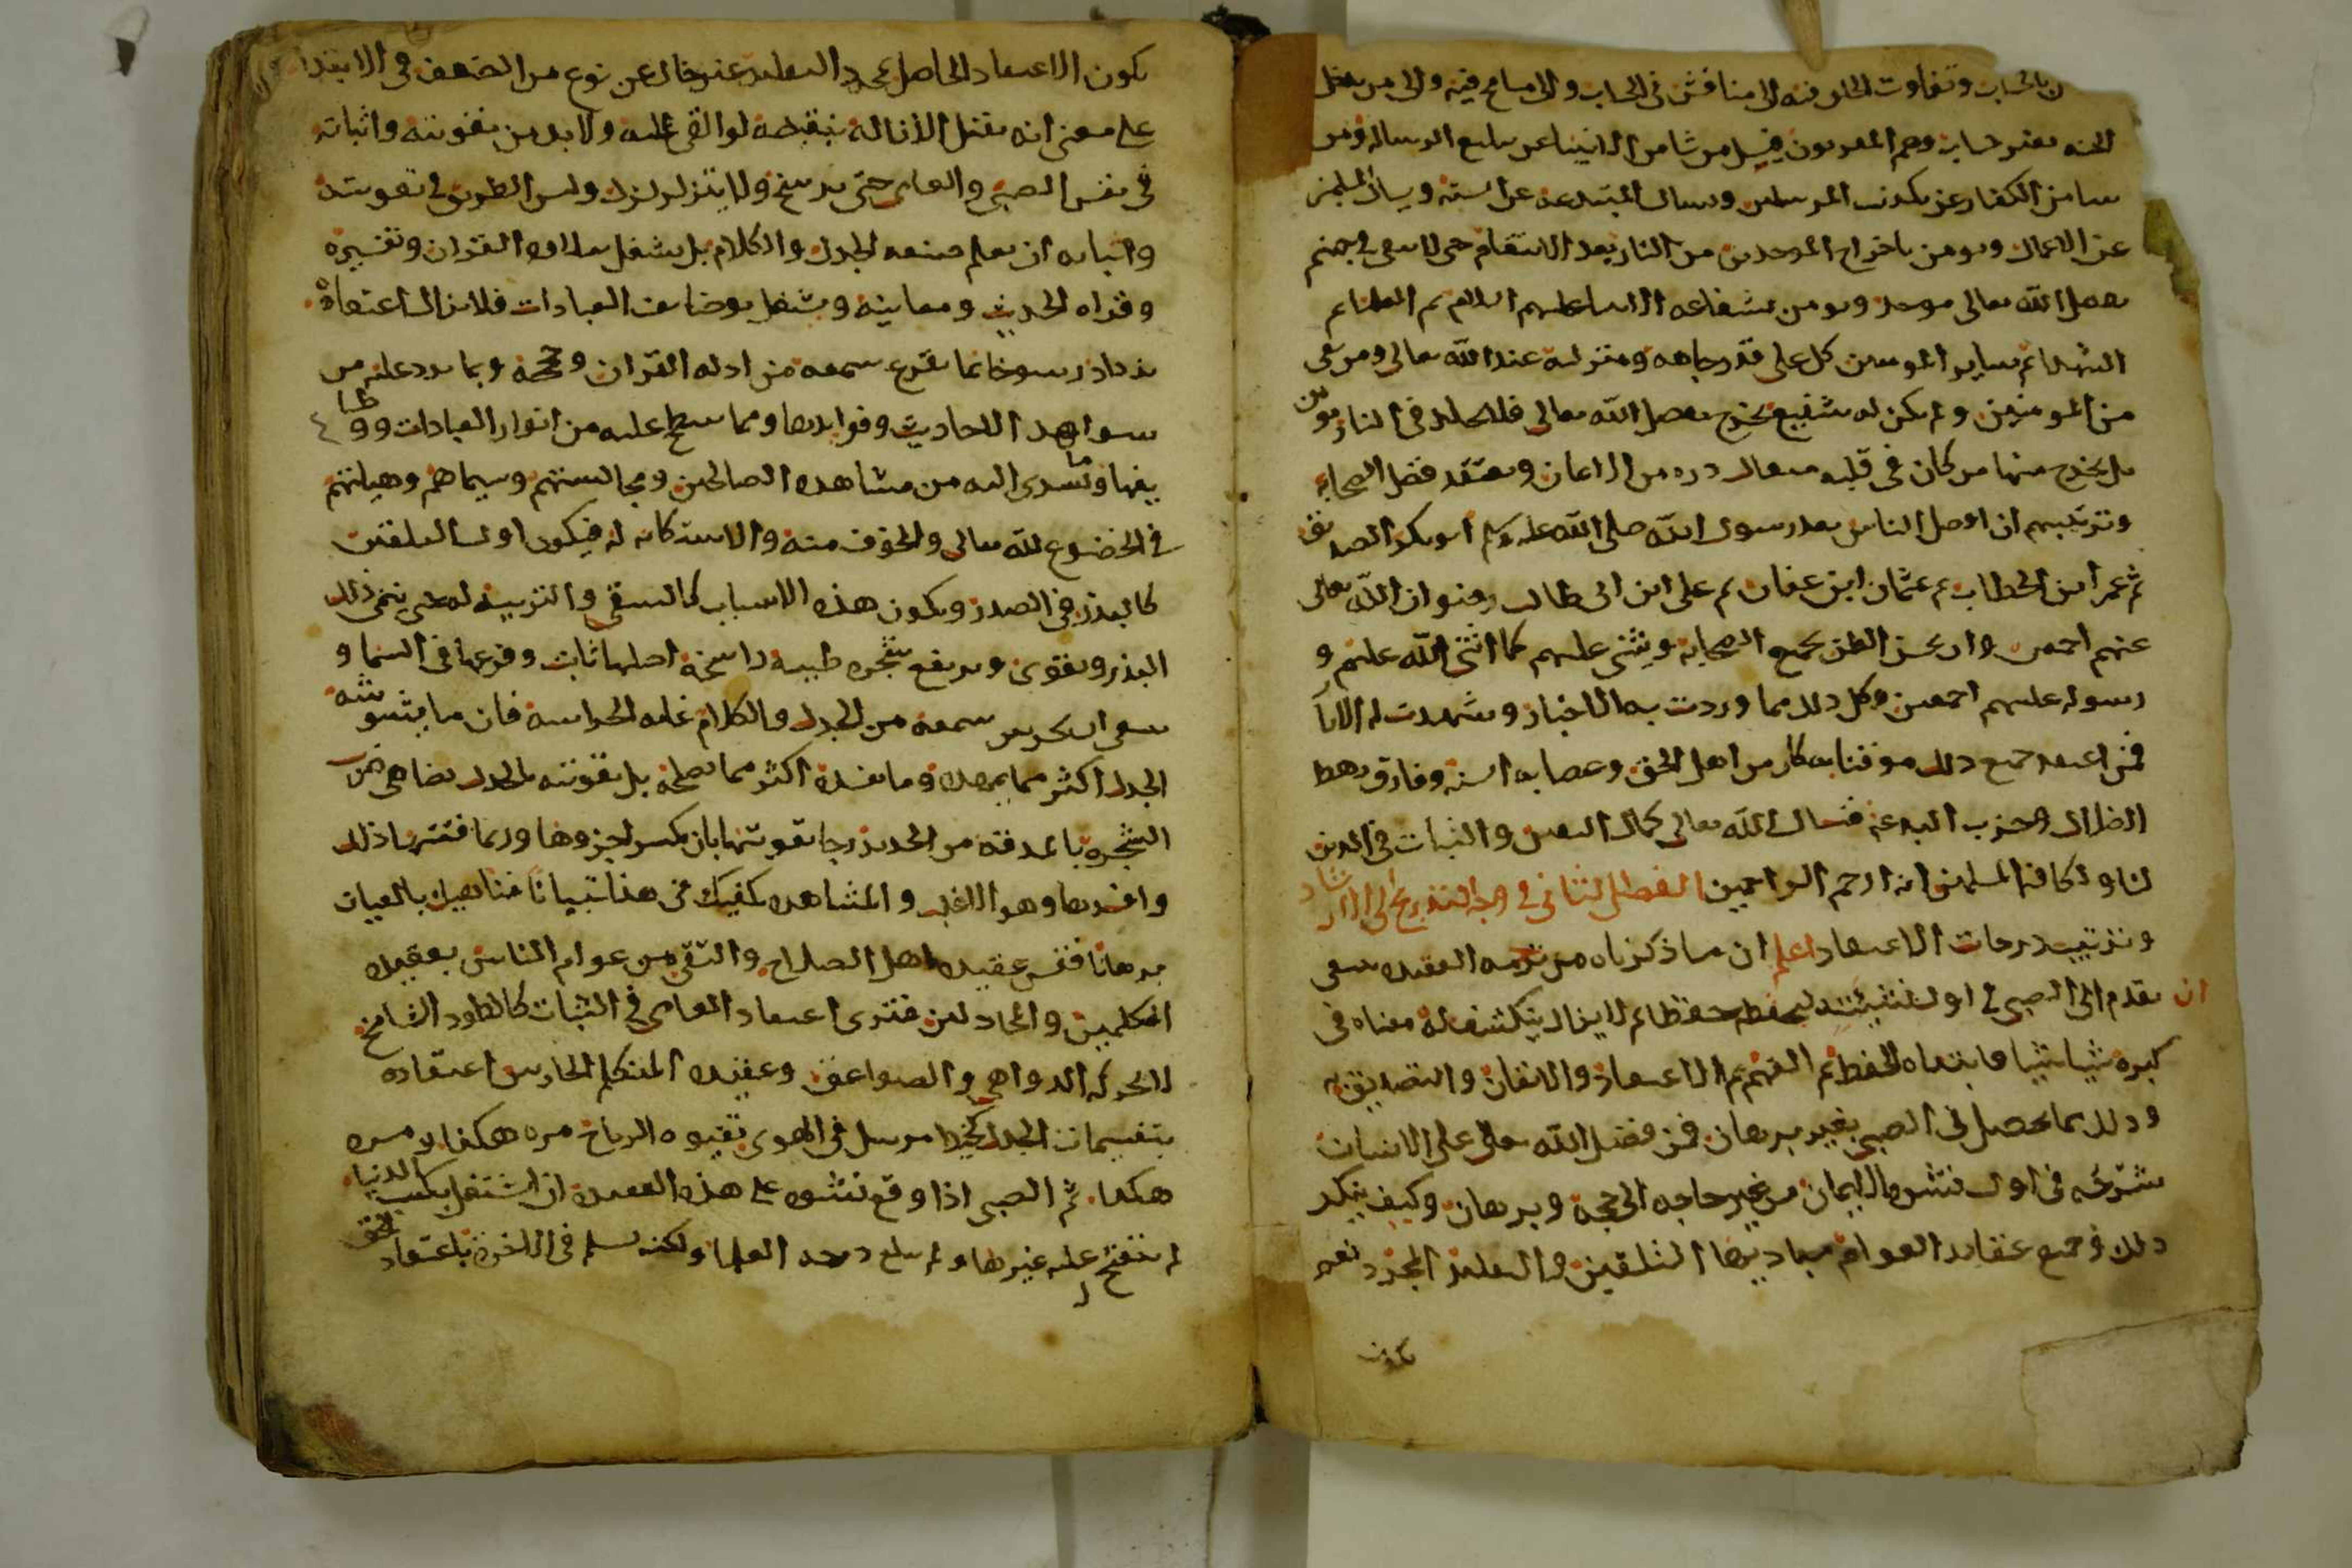 بالحساب وتفاوت الخلق فيه الى مناقش فى الحساب والى مسامح فيه والى من يدخل
الجنه بغير حساب وهم المقربون فيسل من شا من الانبيا عن تبليع الرساله ومن
شا من الكفار عن تكذيب المرسلين ويسال المبتدعه عن السنه ويسال المسلمين
عن الاعمال ويومن باخراج الموحدين من النار بعد الانتقام حتى لا يبقى في جهنم
بفضل الله تعالى موحد ويومن بشفاعه الانبيا عليهم السلام ثم العلما ثم
الشهدا ثم ساير المومنين كل على قدر جاهه ومنزلته عند الله تعالى ومن بقى
من المومنين ولم يكن له شفيع يخرج بفضل الله تعالى فلا يخلد فى النار مومن
بل يخرج منها من كان فى قلبه مثقال دره من الايمان ويعتقد فضل الصحابه
وترتيبهم ان افضل الناس بعد رسول الله صلى الله عليه وسلم ابو بكر الصديق
ثم عمر ابن الخطاب ثم عثمان ابن عفان ثم على ابن ابى طالب رضوان الله تعالى
عنهم اجمعين وان يحسن الظن بجميع الصحابه ويثنى عليهم كما اثنى الله عليهم و
رسوله عليهم اجمعين وكل ذلك مما وردت به الاخبار وشهدت له الاثار
فمن اعتقد جميع ذلك موقنا به كان من اهل الحق وعصابه السنه وفارق رهط
الظلال وحزب البدعه فنسال الله تعالى كمال اليقين والثبات فى الدين
لنا ولكافه المسلمين انه ارحم الراحمين الفصل الثانى فى وجه التدريج الى الارشاد
وترتيب درجات الاعتقاد اعلم ان ما ذكرناه من ترجمه العقيده ينبغى
ان يقدم الى الصبى فى اول نشيئته ليحفظه حفظا ثم لا يزال ينكشف له معناه فى
كبره شيا شيا فابتداه الحفظ ثم الفهم ثم الاعتقاد والايقان والتصديق به
وذلك مما يحصل فى الصبى بغير برهان فمن فضل الله تعالى على الانسان
شرحه فى اول نشوه للايمان من غير حاجه الى حجة وبرهان وكيف ينكر
ذلك وجميع عقايد العوام مباديها التلقين والتقليد المجرد نعم
يكون
يكون الاعتقاد الحاصل بمجرد التقليد غير خال عن نوع من الضعف فى الابتدا
على معنى انه يقبل الازاله بنقيضه لو القى عليه ولا بد من تقويته واثباته
فى نفس الصبى والعامى حتى يرسخ ولا يتزلزل وليس الطريق فى تقويته
واثباته ان يعلم صنعه الجدل والكلام بل يشغل بتلاوه القران وتفسيره
وقراه الحديث ومعانيه ويشغل بوضايف العبادات فلا يزال اعتقاده
يزداد رسوخا بما يقرع سمعه من ادله القران وحججه وبما يرد عليه من
شواهد الاحاديث وفوايدها ومما يسطع عليه من انوار العبادات ووظا
يفها وما يسرى اليه من مشاهده الصالحين ومجالستهم وسيماهم وهياتهم
فى الخضوع لله تعالى والخوف منه والاستكانه له فيكون اول التلقين
كالبذر فى الصدر ويكون هذه الاسباب كالسقى والتربيه له حتى ينمى ذلك
البذر ويقوى ويرتفع شجره طيبه راسخة اصلها ثابت وفرعها فى السما و
ينبغى ان يحرس سمعه من الجدل والكلام غايه الحراسه فان ما يشوشه
الجدل اكثر مما يمهده وما يفسده اكثر مما يصلحه بل تقويته بالجدل يضاهى ضرب
الشجرة بالمدقه من الحديد رجا تقويتها بان يكسر اجزوها وربما فتتها ذلك
وافسدها وهو الاغلب والمشاهده تكفيك فى هذا تبيانا فناهيك بالعيان
برهانا فقس عقيده اهل الصلاح والتقى من عوام الناس بعقيده
المتكلمين والمجادلين فترى اعتقاد العامى فى الثبات كالطود الشامخ
لا يحركه الدواهى والصواعق وعقيده المتكلم الحارس اعتقاده
بتقسيمات الجدل كخيط مرسل فى الهوى تفيوه الرياح مره هكذا ومره
هكذا ثم الصبى اذا وقع نشوه على هذه العقيده ان اشتغل بكسب الدنيا
لم ينفتح عليه غيرها ولم يبلغ درجه العلما ولكنه يسلم فى الاخره باعتقاد الحق